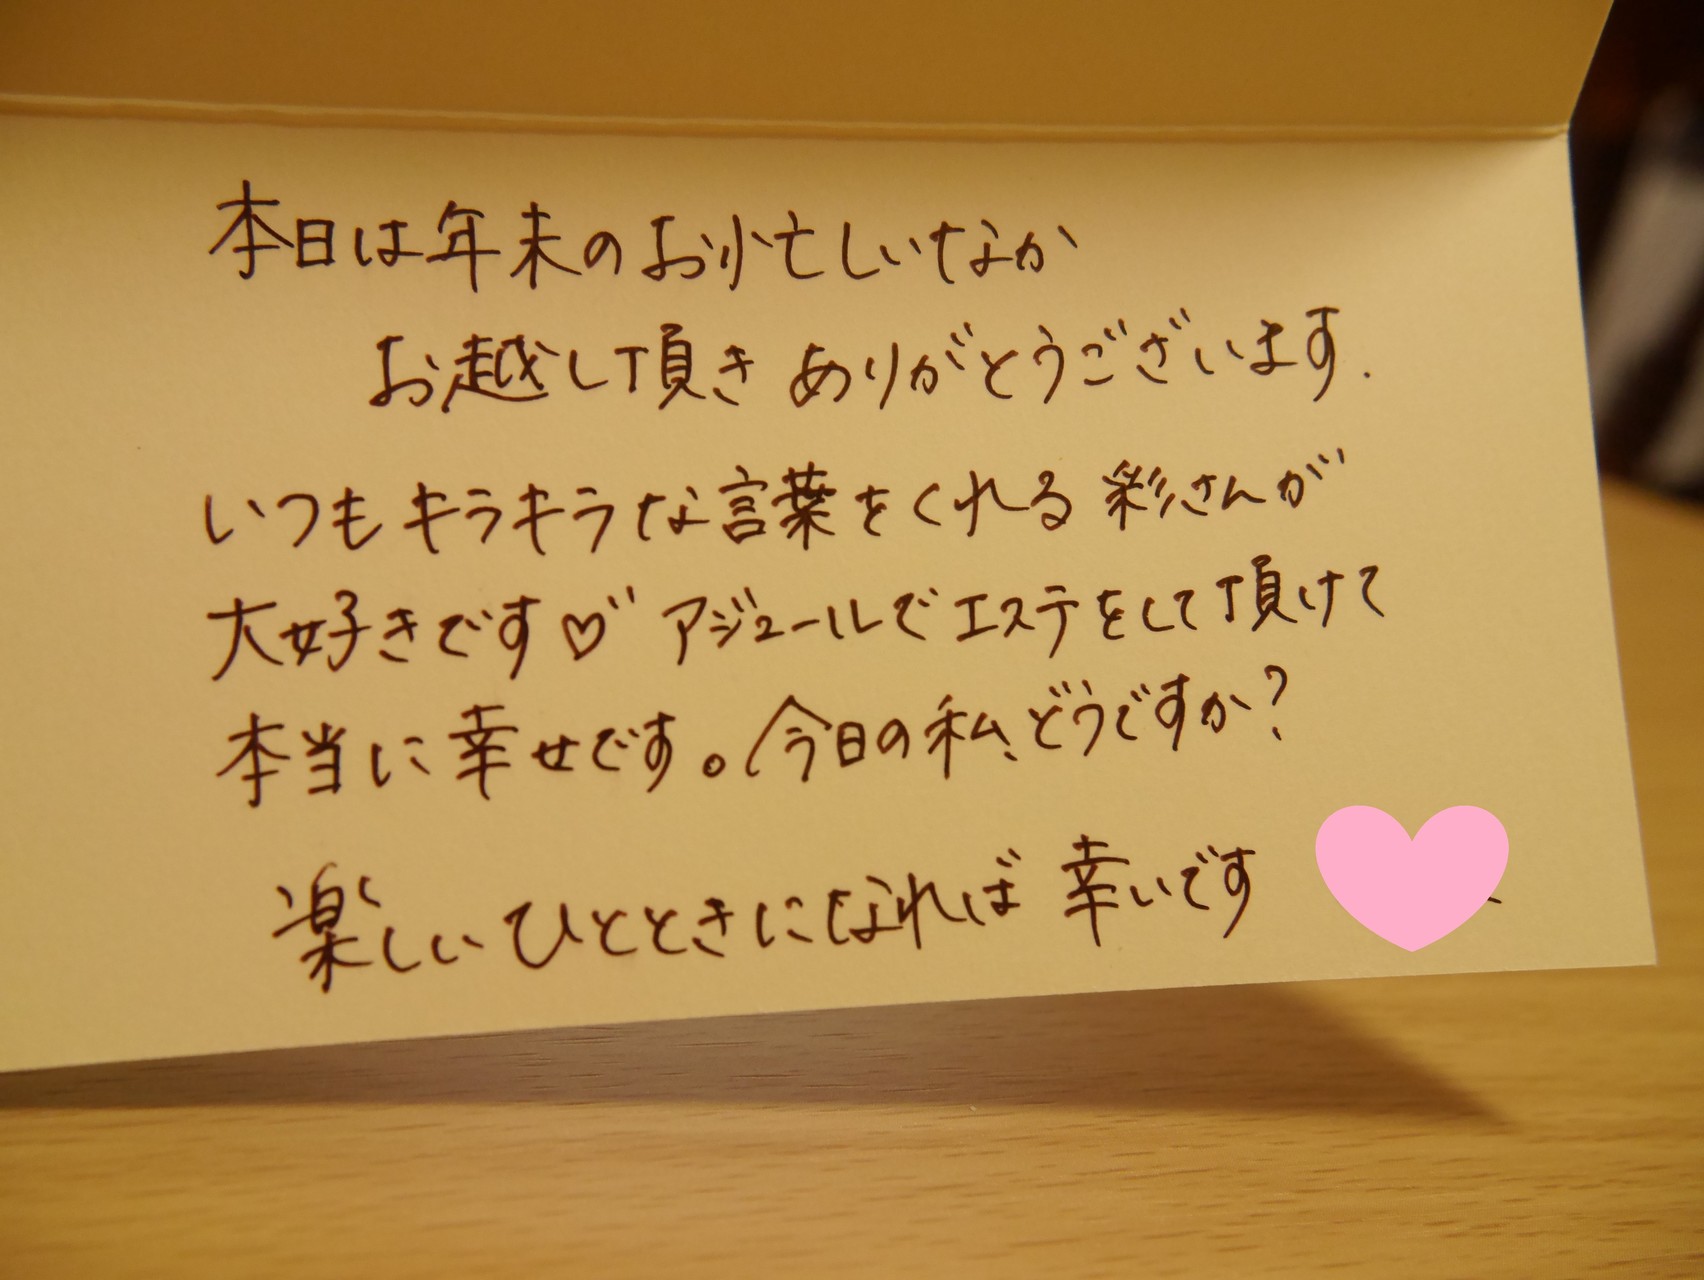 本日は年末のお忙しいなか
お越し頂き ありがとうございます.
いつもキラキラな言葉をくれる 彩さんが
大好きです♡" アジュールでエステをして頂けて
本当に幸せです。今日の私、どうですか?
楽しいひとときになれば 幸いです